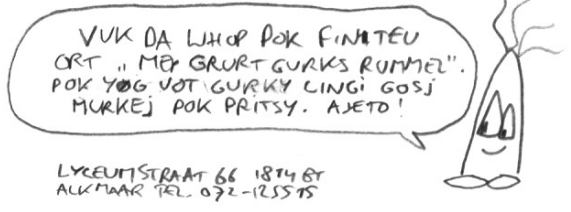 VUK DA WHOP POK FINITEU
ORT „MEP GRURT GURKS RUMMEL".
POK YOG VOT GURKY LINGI GOSJ
MURKEJ POK PRITSY. AJETO!
LYCEUMSTRAAT 66 1814 BT
ALKMAAR TEL. 072-125515